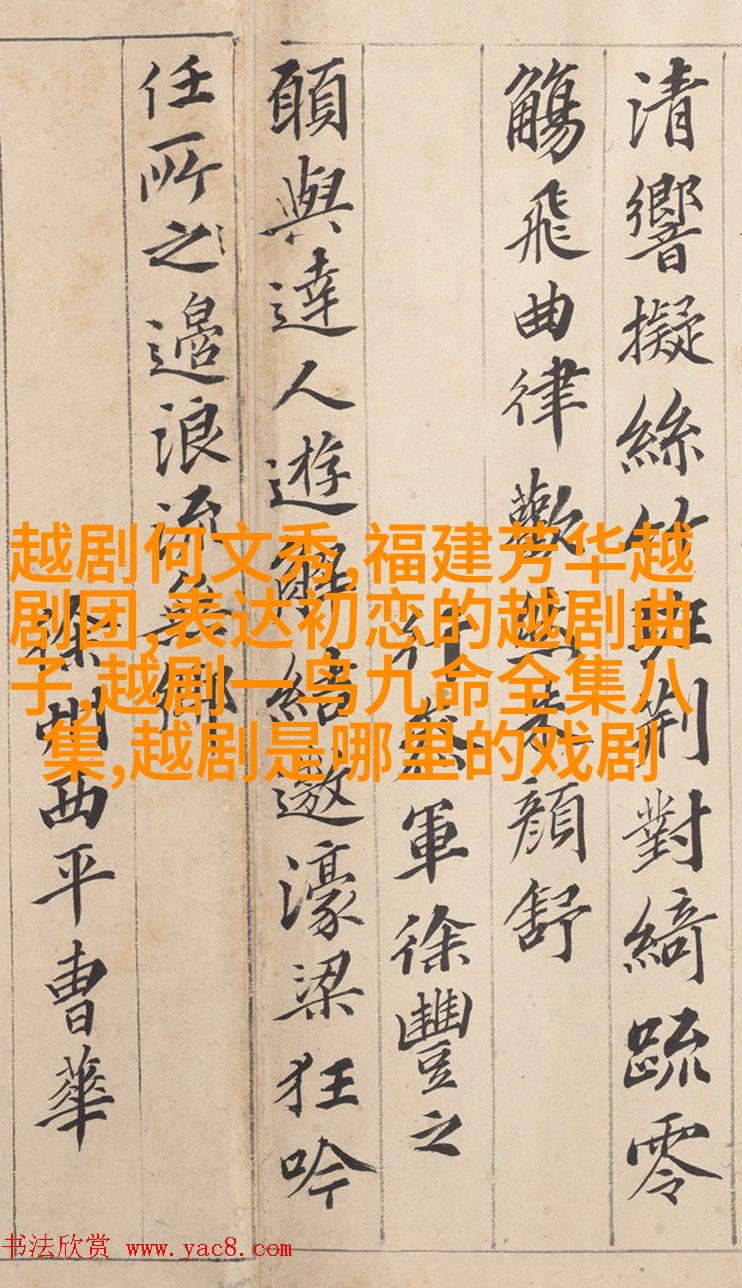 越剧何文秀,福建芳华越
剧团,表达初恋的越剧曲
子,越剧一鸟九命全集八
集,越剧是哪里的戏剧
清響擬絲竹班荊對綺疏零
觴飛曲律歡然朱顏舒
行參軍徐豐之
願與達人遊解結遨濠梁狂吟
任所之邊浪流無鄉
徐州西平曹華
书法欣赏 www.yac8.com